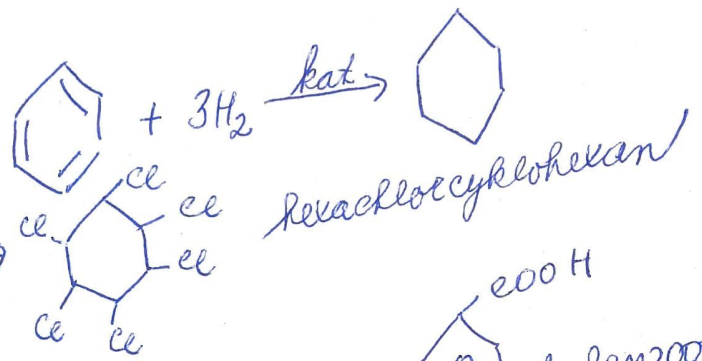 + 3H₂ kat
Cl
Cl
Cl
Cl
Cl
Cl
hexachlorcyklohexan
COOH